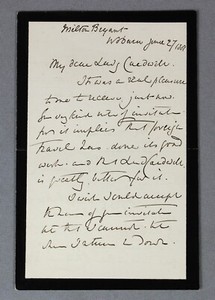 Milton Bryant
Woburn June 27
My dear Lady Cardwell.
It was a real pleasure
to me to receive just now
your kind note of invitation
for it implies that foreign
travel has done its good
work and that Lord Cardwell
is greatly better for it.
I wish I could accept
the of your invitation
but I cannot. We